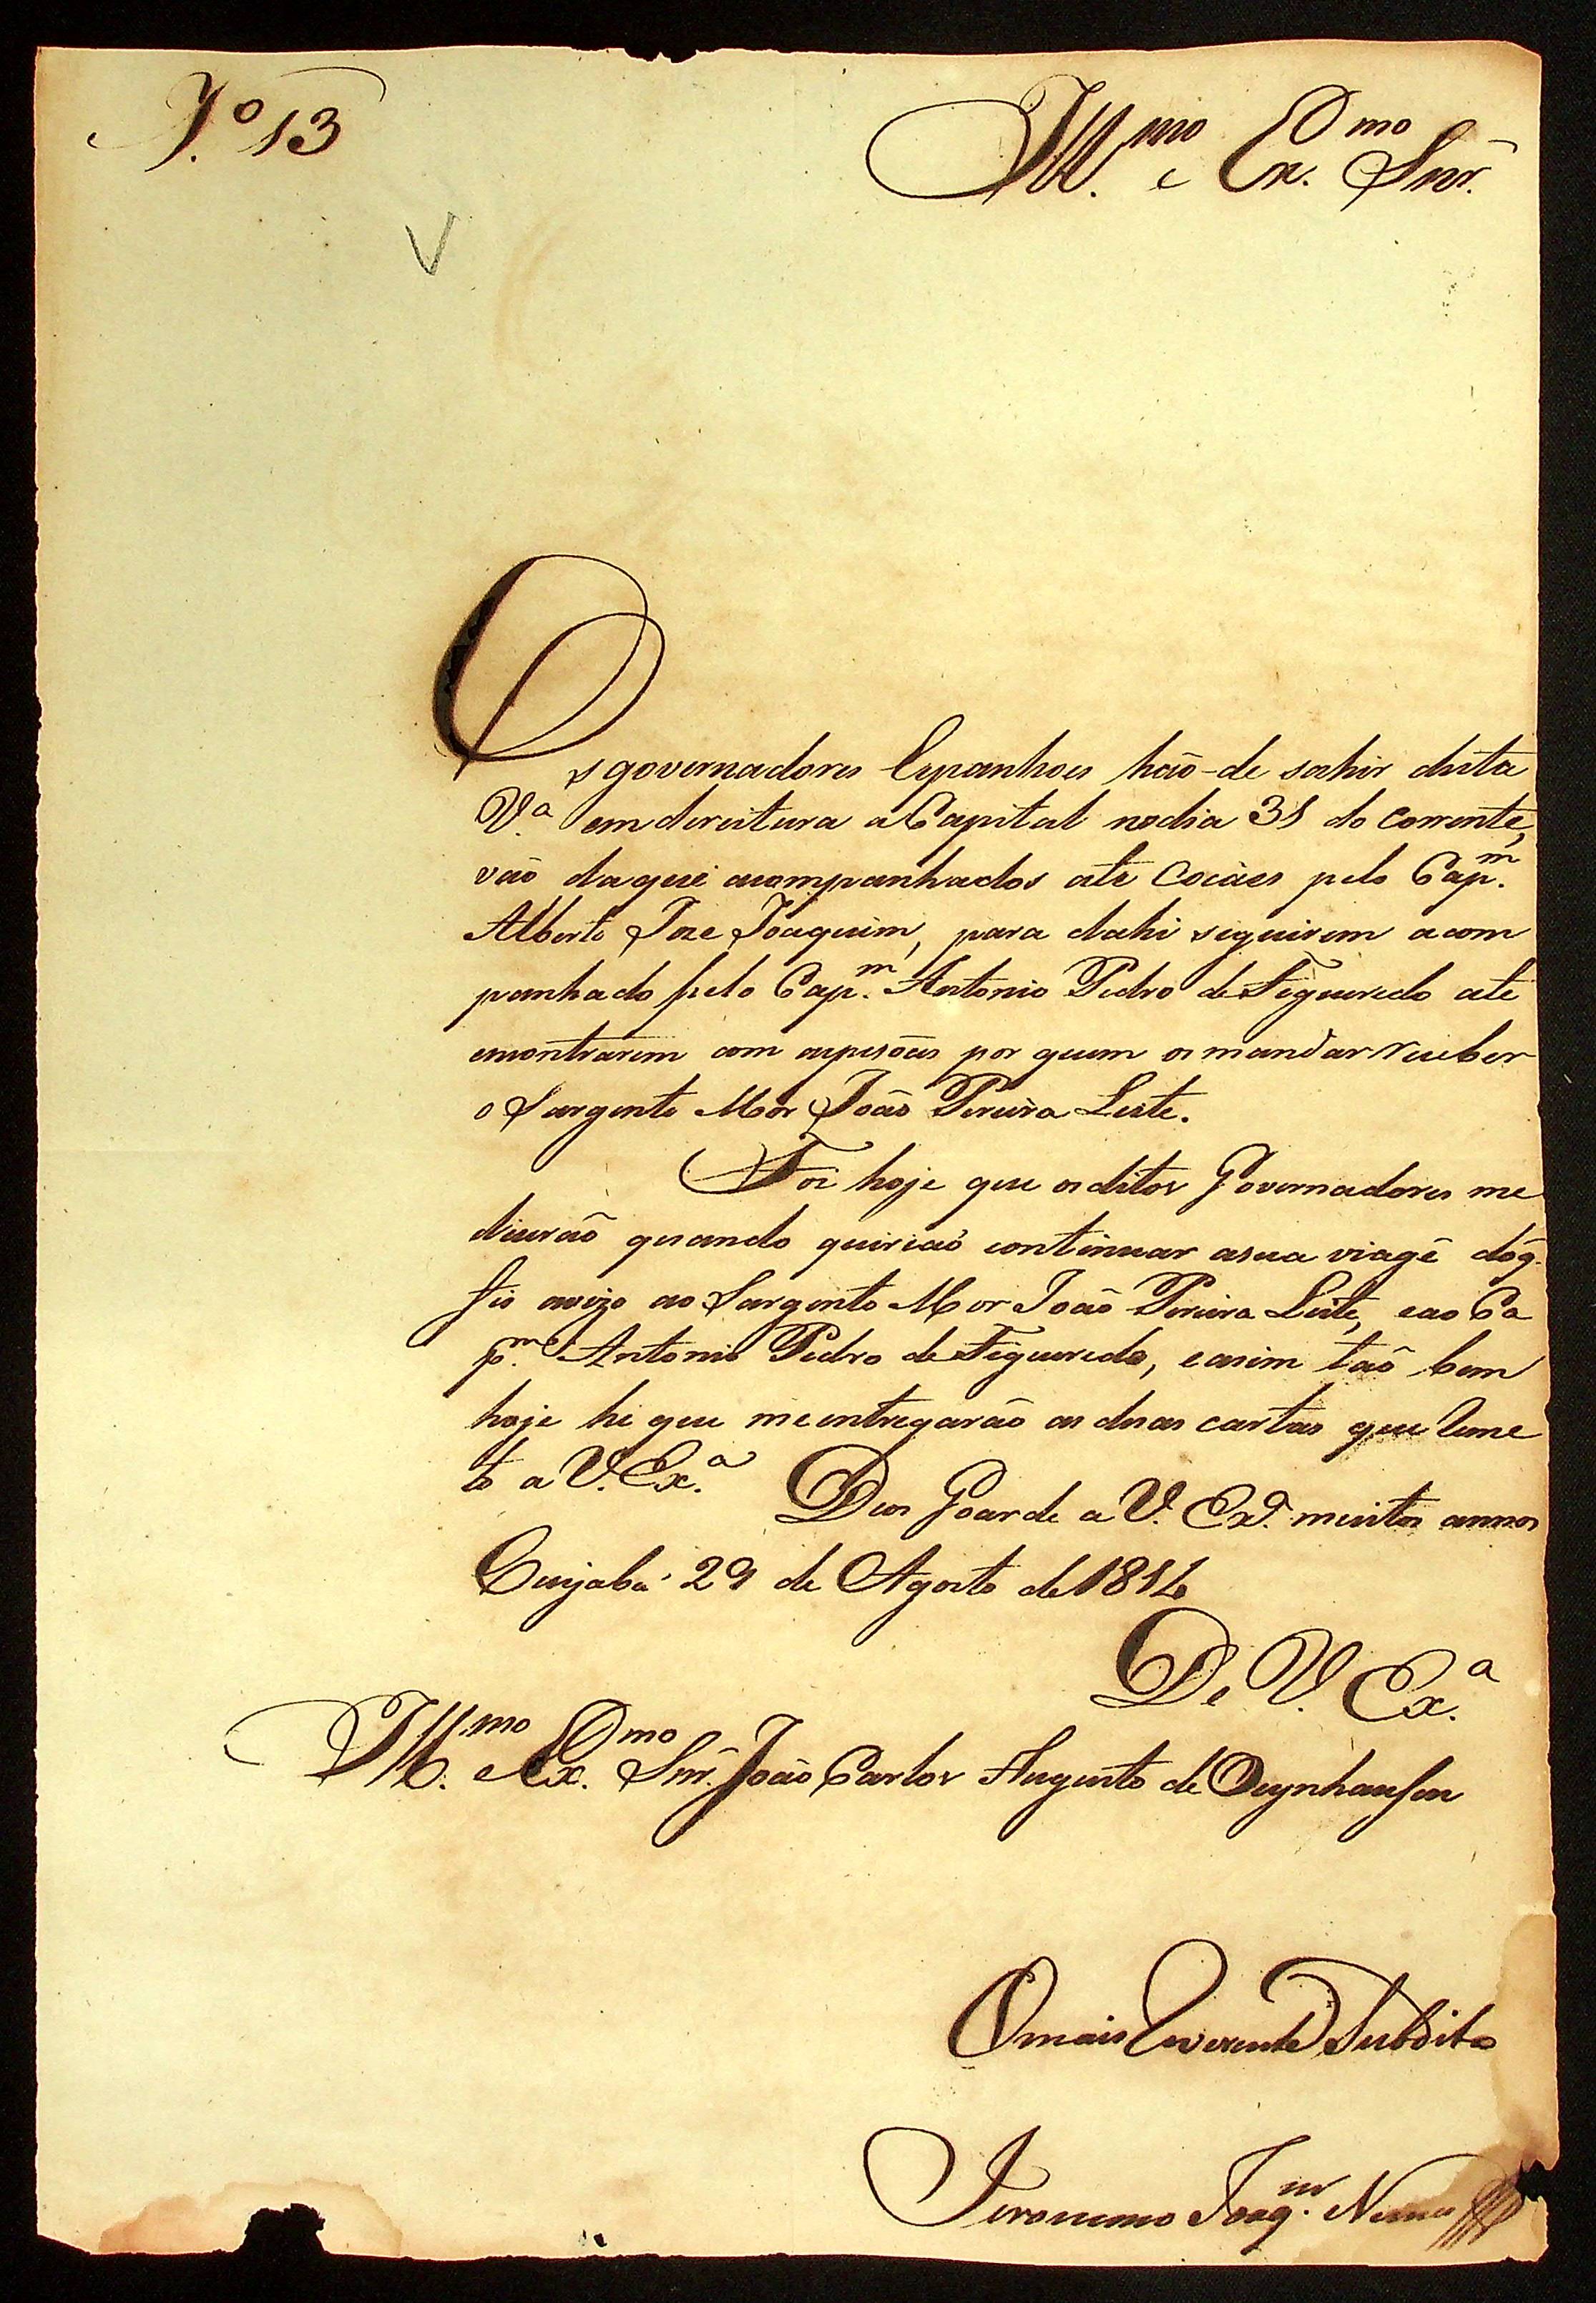 N.º 13
Ill.mo e Ex.mo Snr.
Os governadores Espanhoes hão-de sahir desta
V.a em direitura a Capital no dia 31 do corrente,
vão daqui acompanhados ate Cocáes pelo Cap.m
Alberto Joze Joaquim, para dahi seguirem acom
panhado pelo Cap.m Antonio Pedro de Figueredo ate
encontrarem com as pesōas por quem os mandar receber
o Sargento Mór João Pereira Leite.
Foi hoje que os ditos Governadores me
diceraõ quando queriaõ continuar a sua viagē dóq.
fis avizo ao Sargento Mor João Pereira Leite, e ao Ca
p.m Antonio Pedro de Figueredo, e asim taõ bem
hoje he que me entregarão as duas cartas que Reme
to a V. Ex.a Deos Goarde a V. Ex.a muitos annos
Cuyabá 29 de Agosto de 1816
De V. Ex.a
Ill.mo e Ex.mo Snr. João Carlos Augusto de Oeynhausen
O mais Reverente Subdito
Jeronimo Joaq.m Nunes